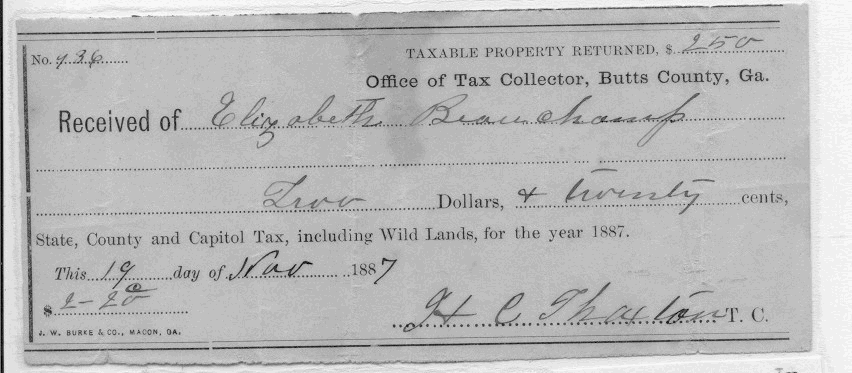 No. 936 TAXABLE PROPERTY RETURNED, $ 250
Office of Tax Collector, Butts County, Ga.
Received of Elizabeth Beauchamp
Two Dollars, & twenty cents,
State, County and Capitol Tax, including Wild Lands, for the year 1887.
This 19 day of Nov 1887
$ 2-20c
H C Thaxton T. C.
J. W. BURKE & CO., MACON, GA.